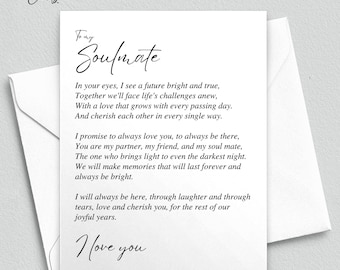 To my
Soulmate
In your eyes, I see a future bright and true,
Together we'll face life's challenges anew,
With a love that grows with every passing day.
And cherish each other in every single way.
I promise to always love you, to always be there,
You are my partner, my friend, and my soul mate,
The one who brings light to even the darkest night.
We will make memories that will last forever and
always be bright.
I will always be here, through laughter and through
tears, love and cherish you, for the rest of our
joyful years.
I love you